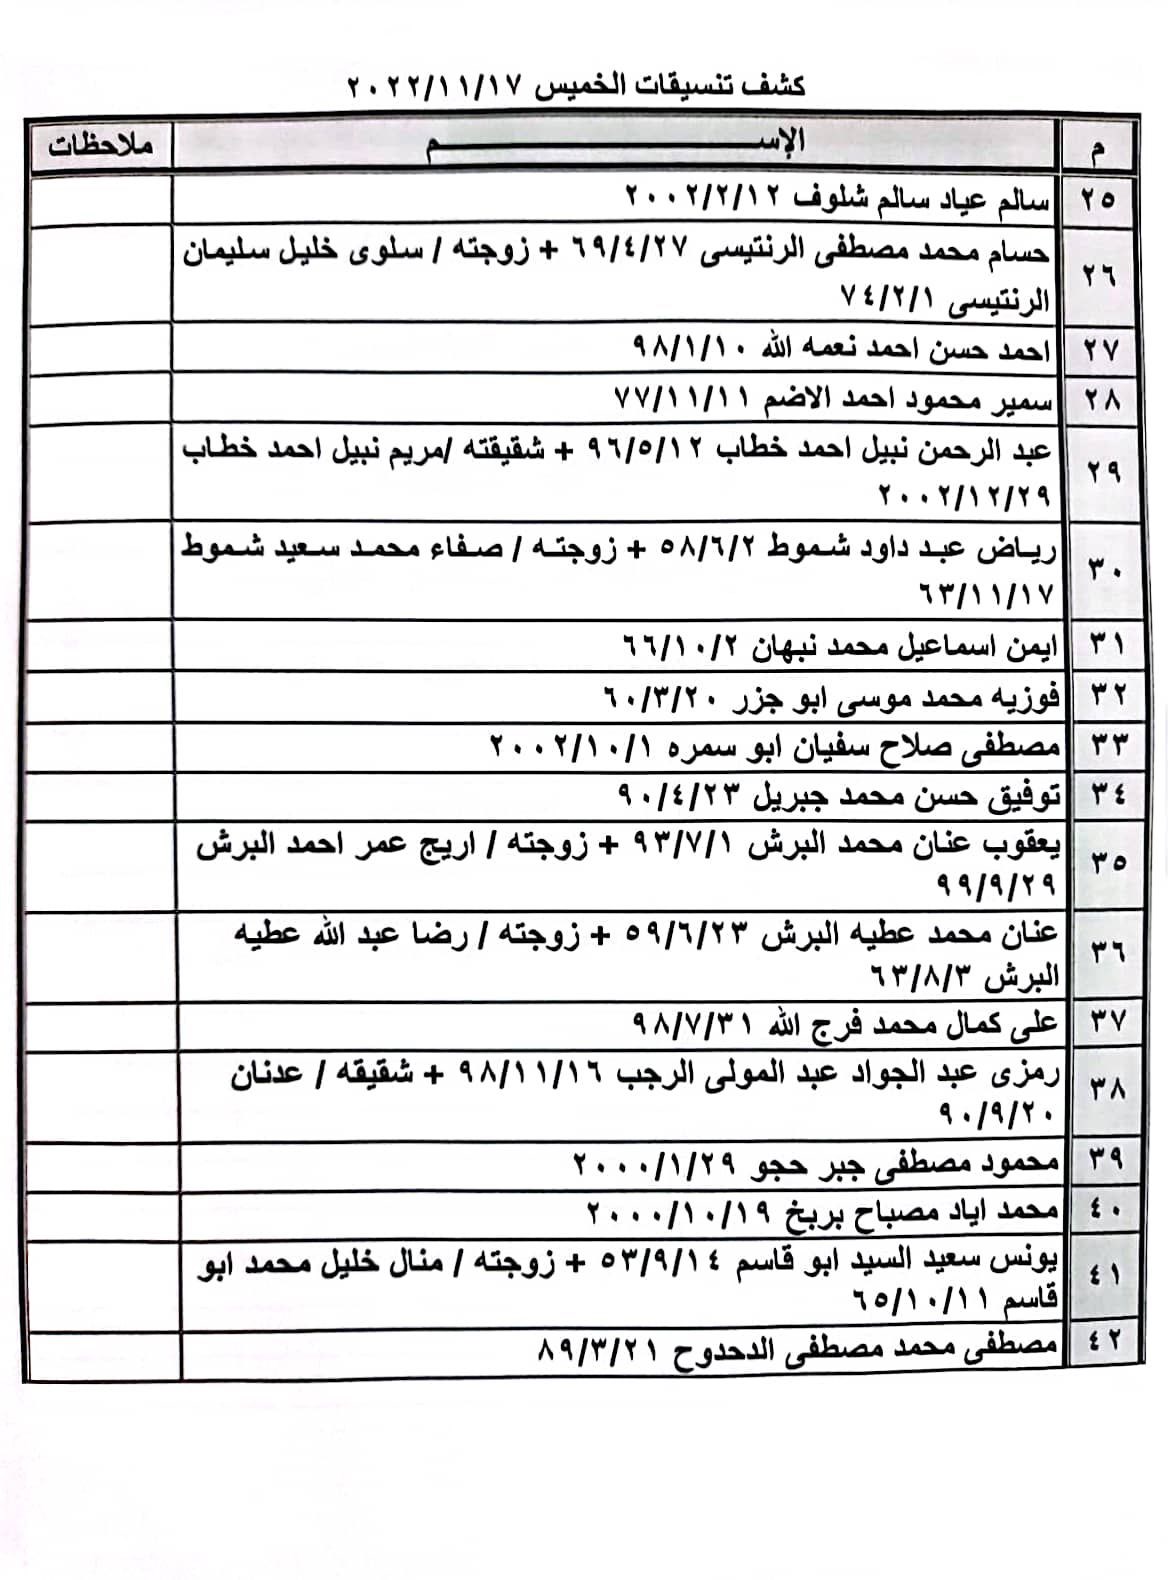 كشف تنسيقات الخميس ٢٠٢٢/١١/١٧
م الإســـــــــم ملاحظات
٢٥ سالم عياد سالم شلوف ٢٠٠٢/٢/١٢
٢٦ حسام محمد مصطفى الرنتيسى ٦٩/٤/٢٧ + زوجته / سلوى خليل سليمان
الرنتيسى ٧٤/٢/١
٢٧ احمد حسن احمد نعمه الله ٩٨/١/١٠
٢٨ سمير محمود احمد الاضم ٧٧/١١/١١
٢٩ عبد الرحمن نبيل احمد خطاب ٩٦/٥/١٢ + شقيقته /مريم نبيل احمد خطاب
٢٠٠٢/١٢/٢٩
٣٠ رياض عبد داود شموط ٥٨/٦/٢ + زوجته / صفاء محمد سعيد شموط
٦٣/١١/١٧
٣١ ايمن اسماعيل محمد نبهان ٦٦/١٠/٢
٣٢ فوزيه محمد موسى ابو جزر ٦٠/٣/٢٠
٣٣ مصطفى صلاح سفيان ابو سمره ٢٠٠٢/١٠/١
٣٤ توفيق حسن محمد جبريل ٩٠/٤/٢٣
٣٥ يعقوب عنان محمد البرش ٩٣/٧/١ + زوجته / اريج عمر احمد البرش
٩٩/٩/٢٩
٣٦ عنان محمد عطيه البرش ٥٩/٦/٢٣ + زوجته / رضا عبد الله عطيه
البرش ٦٣/٨/٣
٣٧ على كمال محمد فرج الله ٩٨/٧/٣١
٣٨ رمزى عبد الجواد عبد المولى الرجب ٩٨/١١/١٦ + شقيقه / عدنان
٩٠/٩/٢٠
٣٩ محمود مصطفى جبر حجو ٢٠٠٠/١/٢٩
٤٠ محمد اياد مصباح بربخ ٢٠٠٠/١٠/١٩
٤١ يونس سعيد السيد ابو قاسم ٥٣/٩/١٤ + زوجته / منال خليل محمد ابو
قاسم ٦٥/١٠/١١
٤٢ مصطفى محمد مصطفى الدحدوح ٨٩/٣/٢١